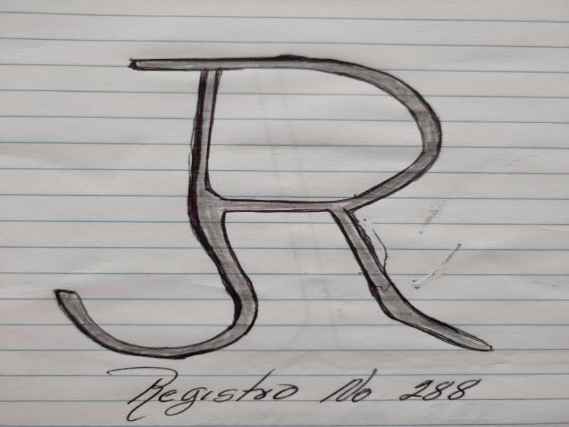 JR
Registro No 288